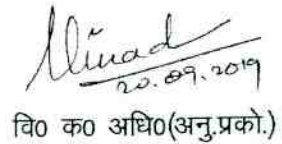 20.09.2019
वि0 क0 अधि0(अनु.प्रको.)